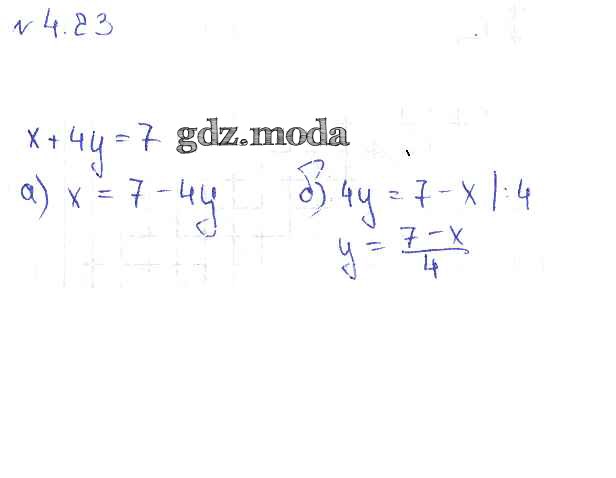 № 4.23
x + 4y = 7 gdz.moda
а) x = 7 - 4y
б) 4y = 7 - x |: 4
y = \frac{7 - x}{4}